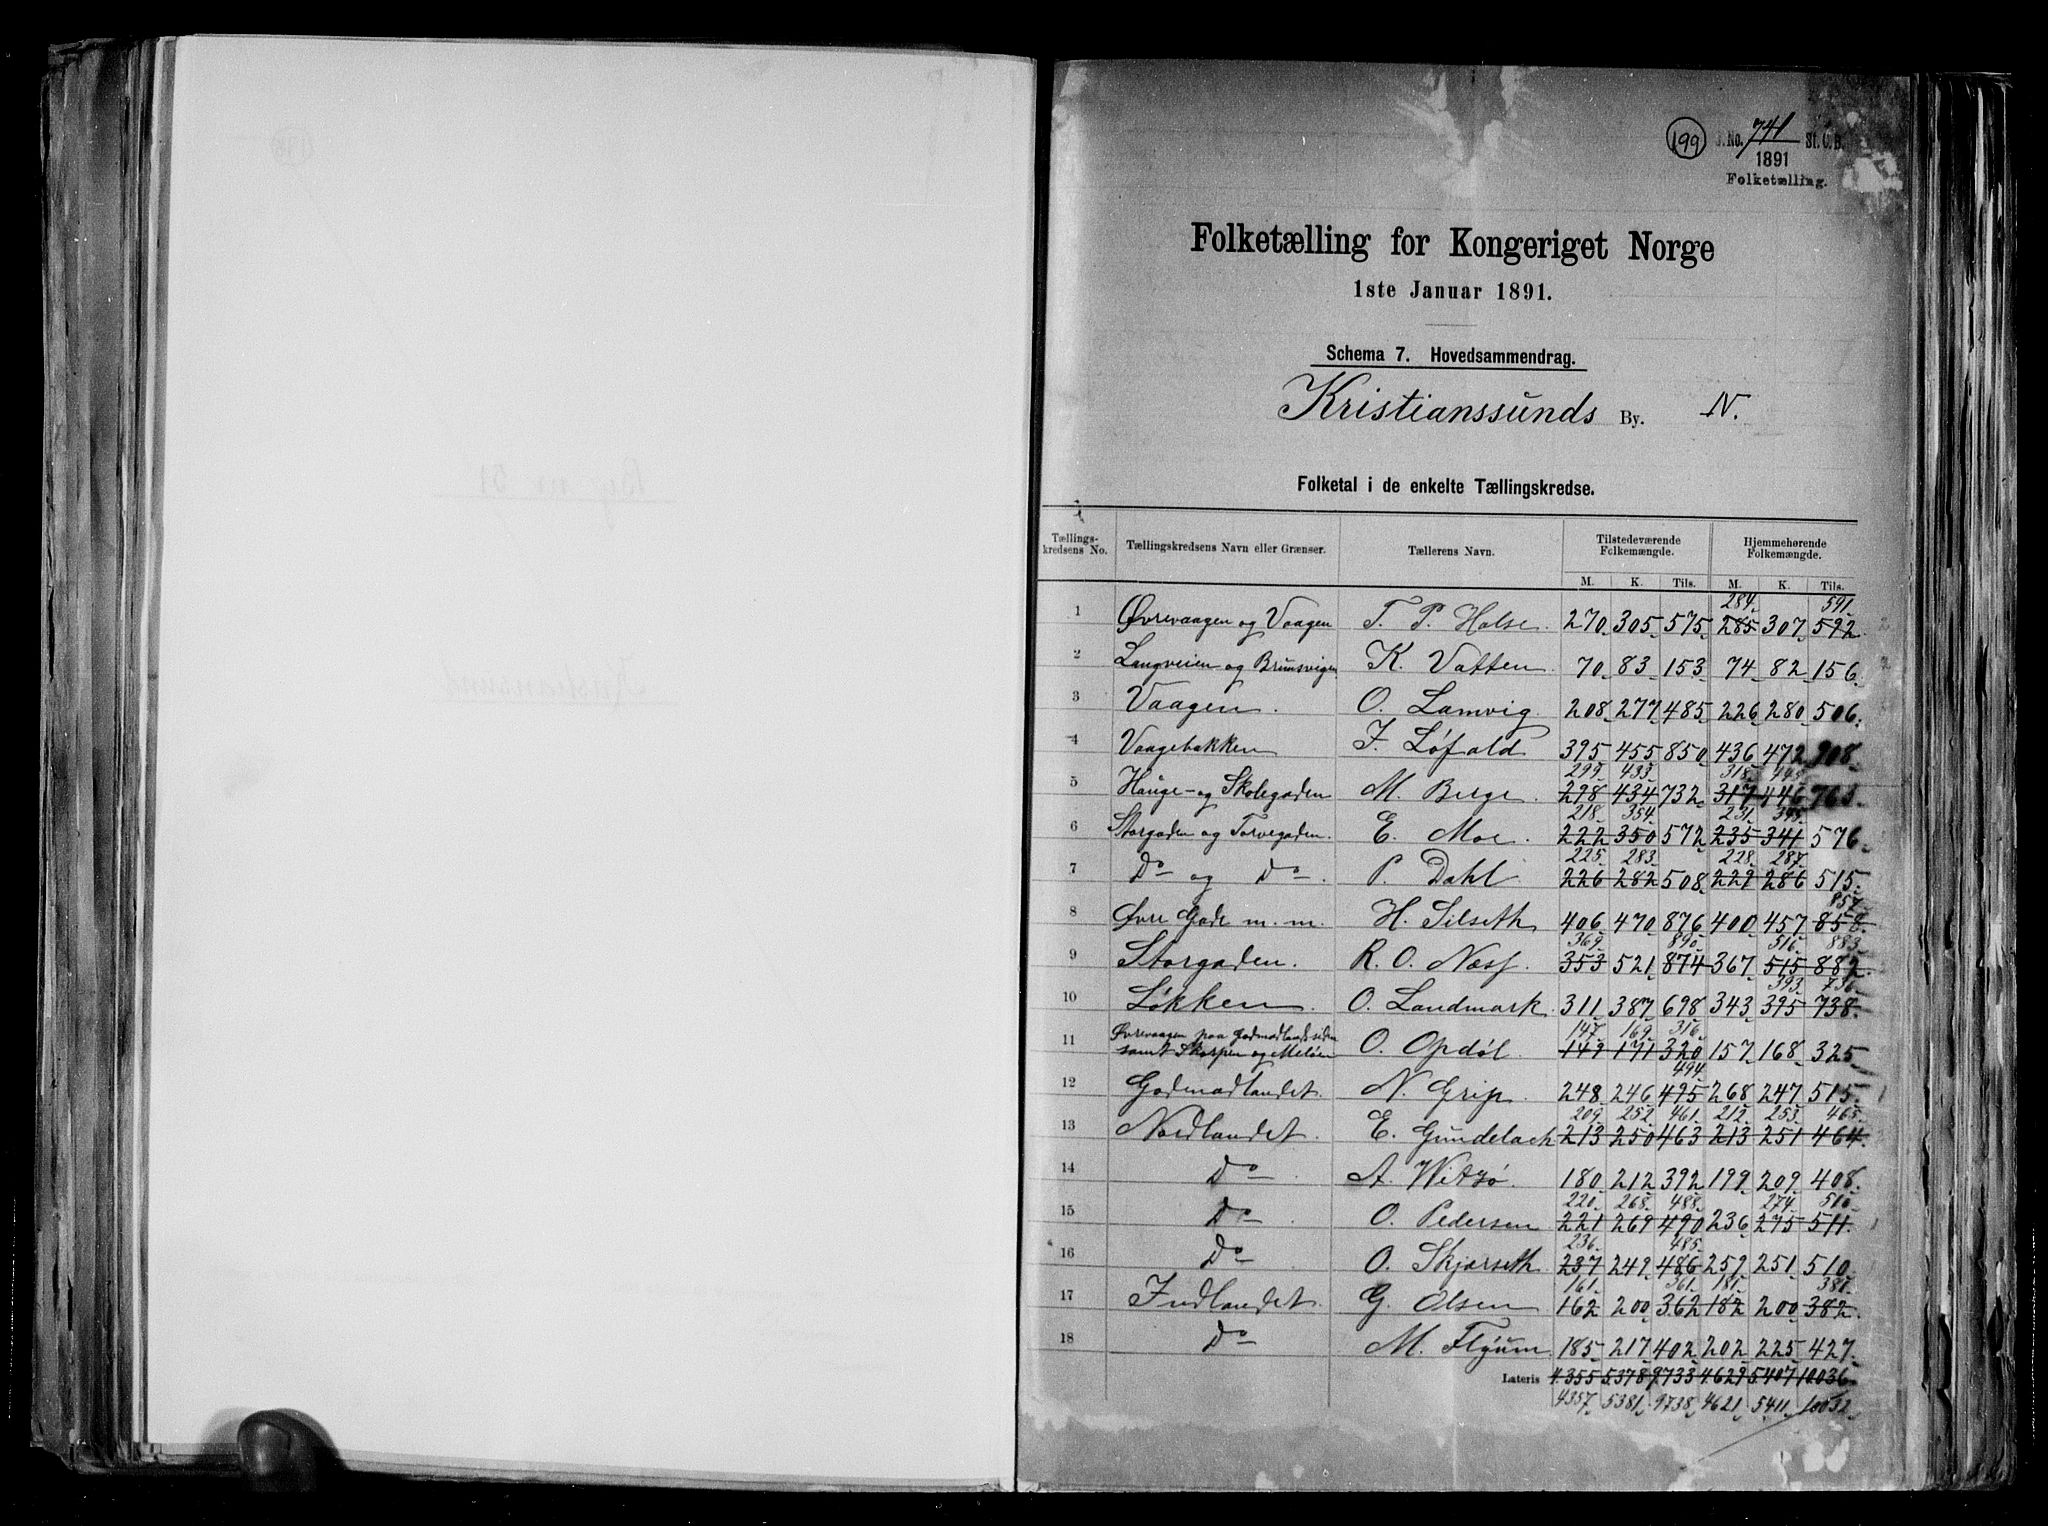 199
J. No. 741 St. C. B.
1891
Folketælling.
Folketælling for Kongeriget Norge
1ste Januar 1891.
Schema 7. Hovedsammendrag.
Kristianssunds By. N.
Folketal i de enkelte Tællingskredse.
Tællings-kredsens No. Tællingskredsens Navn eller Grænser. Tællerens Navn. Tilstedeværende Folkemængde. Hjemmehørende Folkemængde.
M. K. Tils. M. K. Tils.
284. 591.
1 Øvrevaagen og Vaagen T. P. Halse. 270 305 575 285 307 592
2 Langveien og Brunsvigen K. Vatten 70 83 153 74 82 156
3 Vaagen. O. Lamvig 208 277 485 226 280 506
4 Vaagebakken J. Løfald 395 455 850 436 472 908
299 433 318 445
5 Hauge- og Skolegaden M. Berge 298 434 732 317 446 763
218 354 231 345
6 Storgaden og Torvegaden. E. Moe 222 350 572 235 341 576
225 283 228 287
7 Do og Do. P. Dahl 226 282 508 229 286 515
857
8 Øvre Gade m. m. H. Silseth 406 470 876 400 457 858
369 890 516 883
9 Storgaden. R. O. Næss 353 521 874 367 515 882
393 736
10 Løkken. O. Landmark 311 387 698 343 395 738
147 169 316
11 Øvrevaagen paa Godmadlandssiden samt Skorpen og Meløen O. Opdøl 149 171 320 157 168 325
494
12 Godmadlandet N. Grip 248 246 495 268 247 515
209 252 461 212 253 465
13 Nordlandet. E. Gundelach 213 250 463 213 251 464
14 Do A. Witzø 180 212 392 199 209 408
220 268 488 274 510
15 Do O. Pedersen 221 269 490 236 275 511
236 485
16 Do O. Skjærseth 237 249 486 259 251 510
161 361 181 381
17 Indlandet G. Olsen 162 200 362 182 200 382
18 Do M. Flyum 185 217 402 202 225 427
Lateris 4355 5378 9733 4629 5407 10036
4357 5381 9738 4621 5411 10032